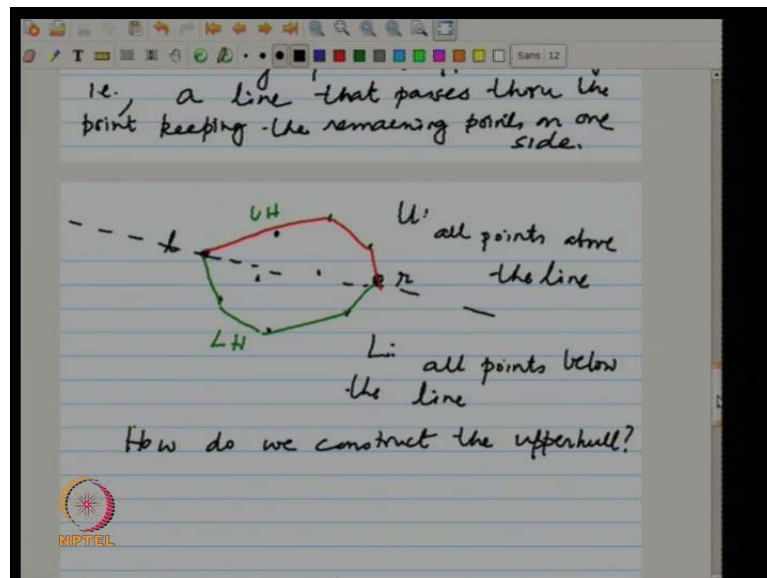 Sans 12
i.e., a line that passes thru the
point keeping the remaining points on one
side.
UH
U:
all points above
l
the line
r
LH
L:
all points below
the line
How do we construct the upperhull?
NPTEL